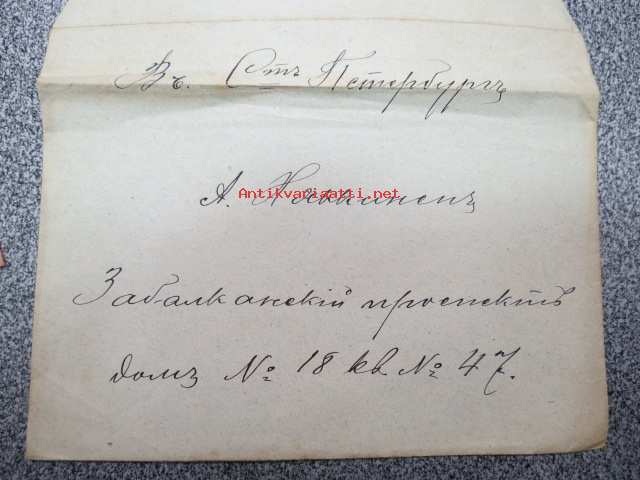 Въ. Стъ Петербургъ
Antikvariaatti.net
А.
Забалканскій проспектъ
домъ № 18 кв № 47.